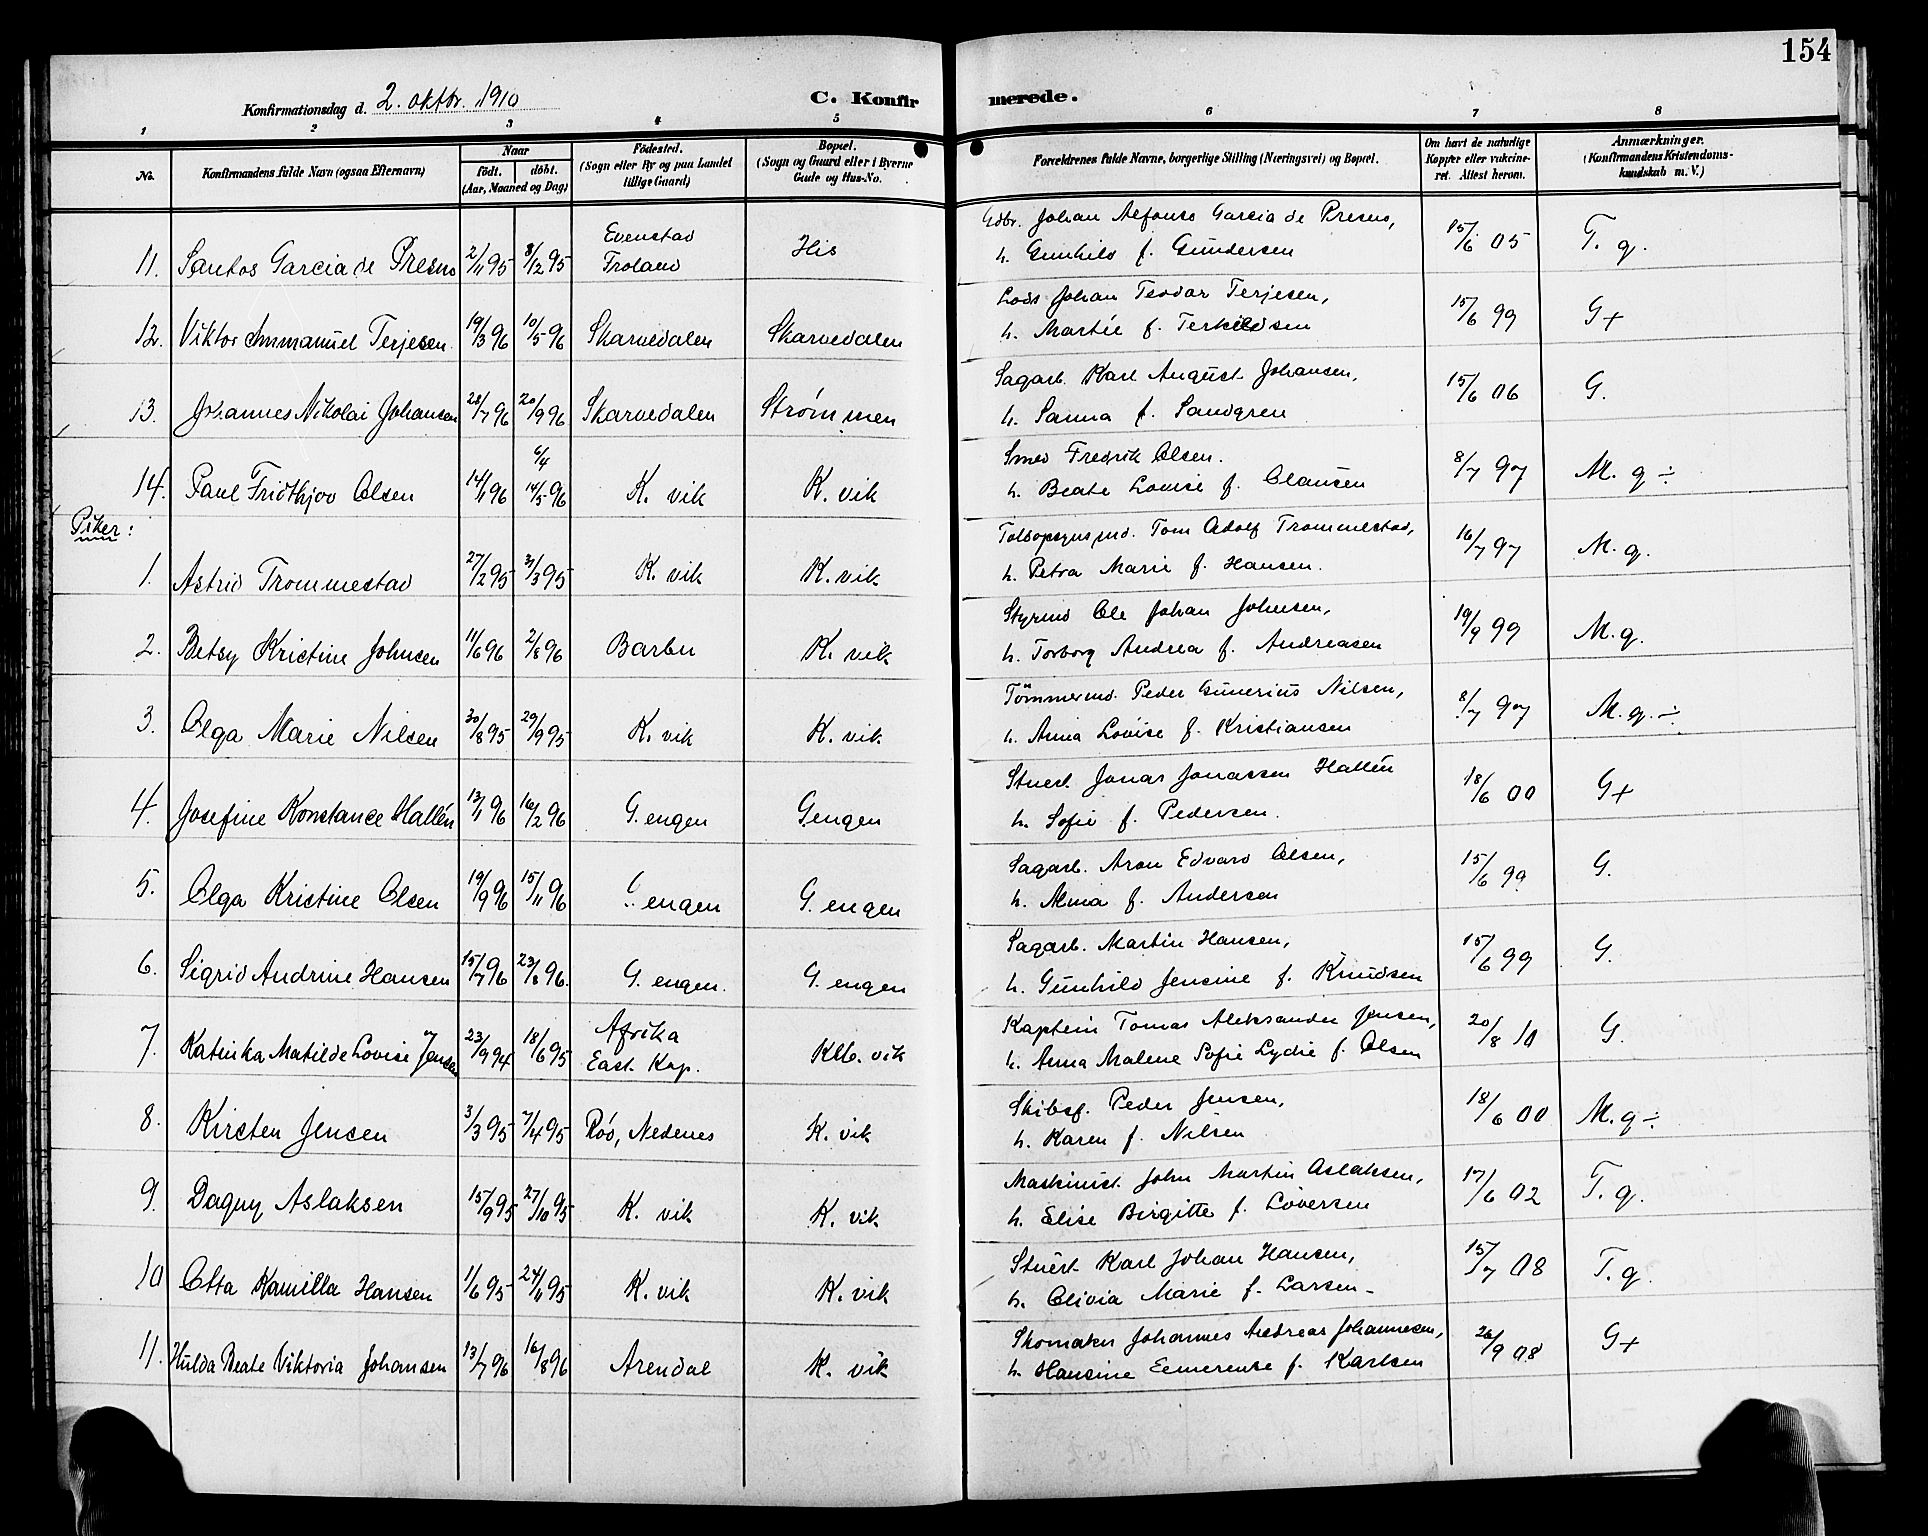 154
Konfirmationsdag d. 2. oktbr. 1910
C. Konfirmerede.
1 2 3 4 5 6 7 8
No.
Konfirmandens fulde Navn (ogsaa Efternavn)
Naar
født. døbt.
(Aar, Maaned og Dag)
Fødested.
(Sogn eller By og paa Landet
tillige Gaard)
Bopæl.
(Sogn og Gaard eller i Byerne
Gade og Hus-No.
Forældrenes fulde Navne, borgerlige Stilling (Næringsvei) og Bopæl.
Om havt de naturlige
Kopper eller vakcine-
ret. Attest herom.
Anmærkninger.
(Konfirmandens Kristendoms-
kundskab m. V.)
11. Santos Garcia de Presno 2/11 95 8/12 95 Evenstad Froland His Gdbr. Johan Alfonso Garcia de Presno,
h. Gunhild f. Gundersen 15/6 05 T. g.
12. Viktor Immanuel Terjesen 19/3 96 10/5 96 Skarvedalen Skarvedalen Lods Johan Teodor Terjesen,
h. Martie f. Terkildsen 15/6 99 G+
13. Johannes Nikolai Johansen 28/7 96 20/9 96 Skarvedalen Strømmen Sagarb. Karl August Johansen,
h. Sanna f. Sandgren 15/6 06 G.
14. Paul Fridthjov Olsen 14/1 96 6/4 14/5 96 K. vik K. vik Smed Fredrik Olsen.
h. Beate Lovise f. Clausen 8/7 97 M. g ÷
Piker:
1. Astrid Trommestad 27/2 95 31/3 95 K. vik K. vik Toldopsynsmd. Tom Adolf Trommestad,
h. Petra Marie f. Hansen. 16/7 97 M. g.
2. Betsy Kristine Johnsen 11/6 96 2/8 96 Barbu K. vik Styrmd Ole Johan Johnsen,
h. Torborg Andrea f. Andreasen 19/9 99 M. g.
3. Olga Marie Nilsen 30/8 95 29/9 95 K. vik K. vik Tømmermd. Peder Gunerius Nilsen,
h. Anna Lovise f. Kristiansen 8/7 97 M. g. ÷
4. Josefine Konstance Hallén 13/1 96 16/2 96 G. engen G.engen Stuert. Jonas Jonassen Hallén
h. Sofie f. Pedersen. 18/6 00 G+
5. Olga Kristine Olsen 19/9 96 15/11 96 G. engen G. engen Sagarb. Aron Edvard Olsen,
h. Alma f. Andersen 15/6 99 G.
6. Sigrid Andrine Hansen 15/7 96 23/8 96. G. engen. G. engen Sagarb. Martin Hansen,
h. Gunhild Jensine f. Knudsen 15/6 99 G.
7. Katinka Matilde Lovise Jensen 23/9 94 18/6 95 Afrika East. Kap. Klb. vik Kaptein Tomas Aleksander Jensen,
h. Anna Malene Sofie Lydie f. Olsen 20/8 10 G.
8. Kirsten Jensen 3/3 95 7/4 95 Röd, Nedenes K. vik Skibsf. Peder Jensen,
h. Karen f. Nilsen 18/6 00 M. g ÷
9. Dagny Aslaksen 15/9 95 27/10 95 K. vik K. vik Maskinist. John Martin Aslaksen,
h. Elise Birgitte f. Löversen 17/6 02 T. g.
10 Otta Kamilla Hansen 1/6 95 24/11 95 K. vik K. vik Stuert Karl Johan Hansen,
h. Olivia Marie f. Larsen 15/7 08 T. g.
11. Hulda Beate Viktoria Johansen 13/7 96 16/8 96 Arendal K. vik Skomaker Johannes Andreas Johannesen,
h. Hansine Eemerense f. Karlsen 26/9 08 G+